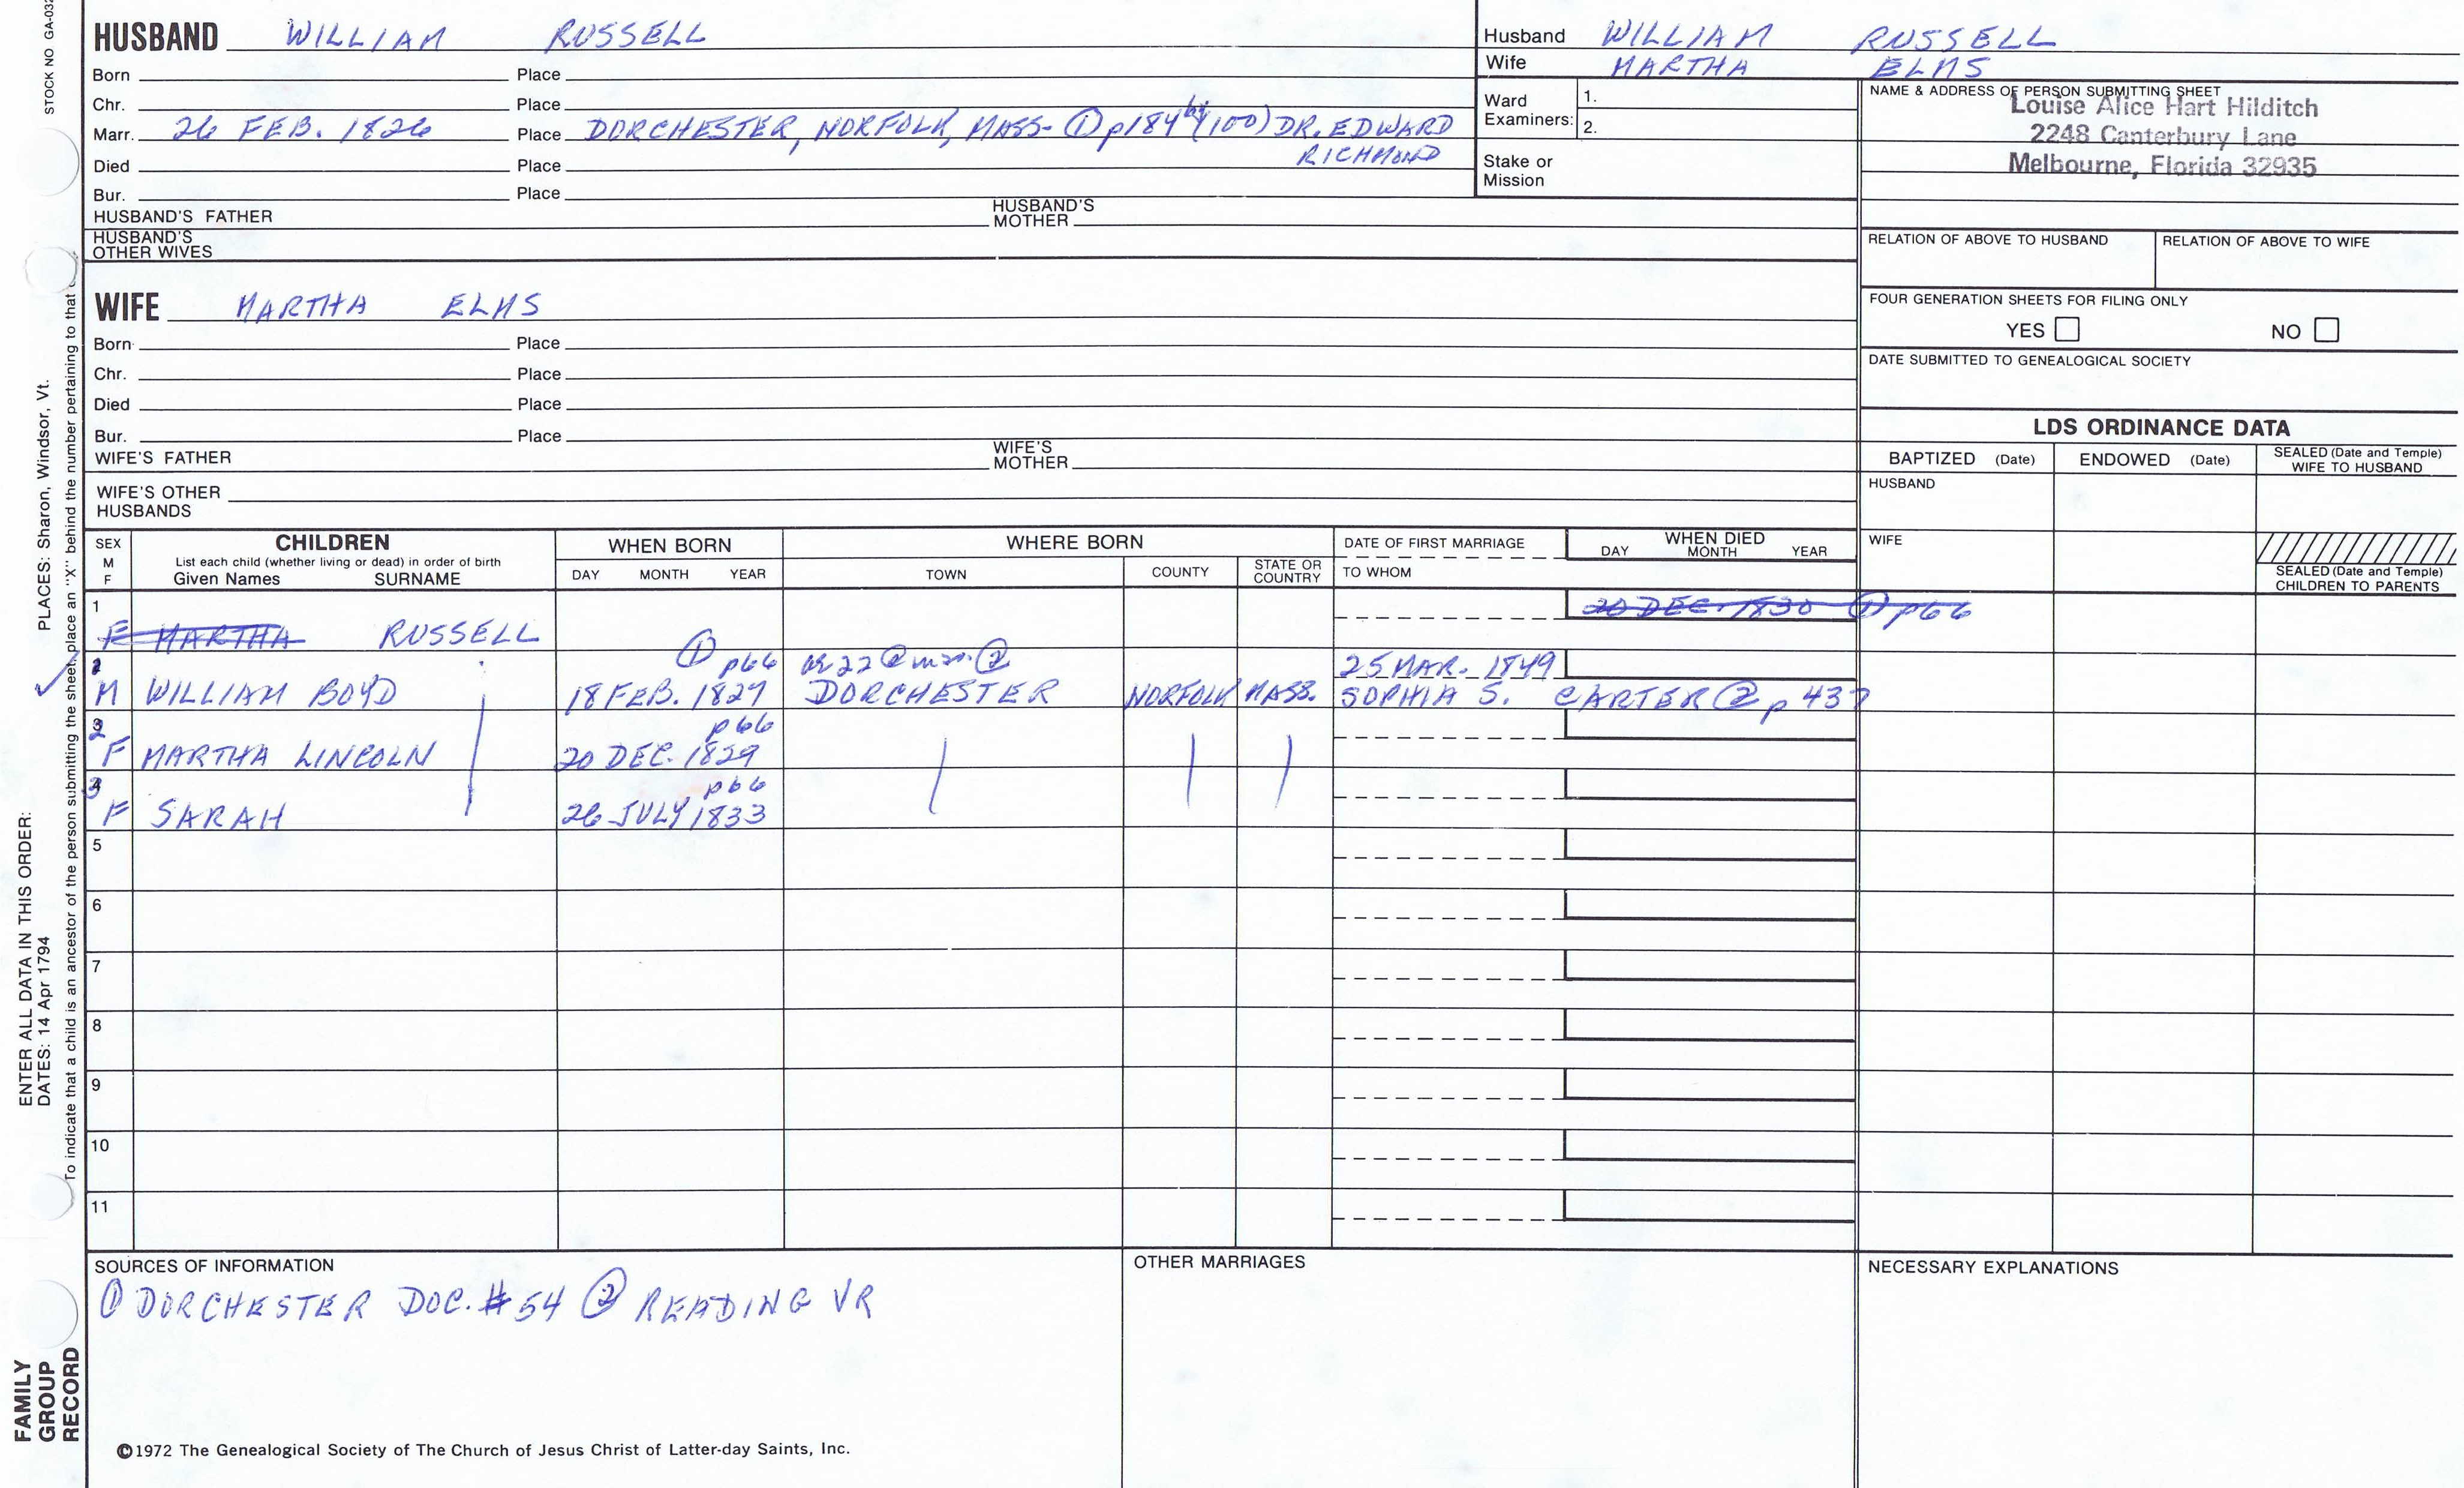 STOCK NO GA-032
HUSBAND WILLIAM RUSSELL
Born Place
Chr. Place
Marr. 26 FEB. 1826 Place DORCHESTER, NORFOLK, MASS- ① p184 by (100) DR. EDWARD
RICHMOND
Died Place
Bur. Place
HUSBAND'S FATHER HUSBAND'S MOTHER
HUSBAND'S
OTHER WIVES
Husband WILLIAM RUSSELL
Wife MARTHA ELMS
Ward
Examiners: 1.
2.
Stake or
Mission
NAME & ADDRESS OF PERSON SUBMITTING SHEET
Louise Alice Hart Hilditch
2248 Canterbury Lane
Melbourne, Florida 32935
RELATION OF ABOVE TO HUSBAND RELATION OF ABOVE TO WIFE
FOUR GENERATION SHEETS FOR FILING ONLY
YES NO
DATE SUBMITTED TO GENEALOGICAL SOCIETY
WIFE MARTHA ELMS
Born Place
Chr. Place
Died Place
Bur. Place
WIFE'S FATHER WIFE'S MOTHER
WIFE'S OTHER
HUSBANDS
LDS ORDINANCE DATA
BAPTIZED (Date) ENDOWED (Date) SEALED (Date and Temple)
WIFE TO HUSBAND
HUSBAND
WIFE
SEALED (Date and Temple)
CHILDREN TO PARENTS
SEX
M
F
CHILDREN
List each child (whether living or dead) in order of birth
Given Names SURNAME
WHEN BORN
DAY MONTH YEAR
WHERE BORN
TOWN COUNTY STATE OR COUNTRY
DATE OF FIRST MARRIAGE
TO WHOM
WHEN DIED
DAY MONTH YEAR
1 20 DEC. 1830 ① p66
F MARTHA RUSSELL
① p66 ae 22 @ mar. ② 25 MAR. 1849
M WILLIAM BOYD 18 FEB. 1827 DORCHESTER NORFOLK MASS. SOPHIA S. CARTER ② p 437
2 p66
F MARTHA LINCOLN 20 DEC. 1829
3 p66
F SARAH 26 JULY 1833
5
6
7
8
9
10
11
SOURCES OF INFORMATION
① DORCHESTER DOC. #54 ② READING VR
OTHER MARRIAGES
NECESSARY EXPLANATIONS
©1972 The Genealogical Society of The Church of Jesus Christ of Latter-day Saints, Inc.
FAMILY
GROUP
RECORD
ENTER ALL DATA IN THIS ORDER:
DATES: 14 Apr 1794
PLACES: Sharon, Windsor, Vt.
To indicate that a child is an ancestor of the person submitting the sheet, place an "X" behind the number pertaining to that